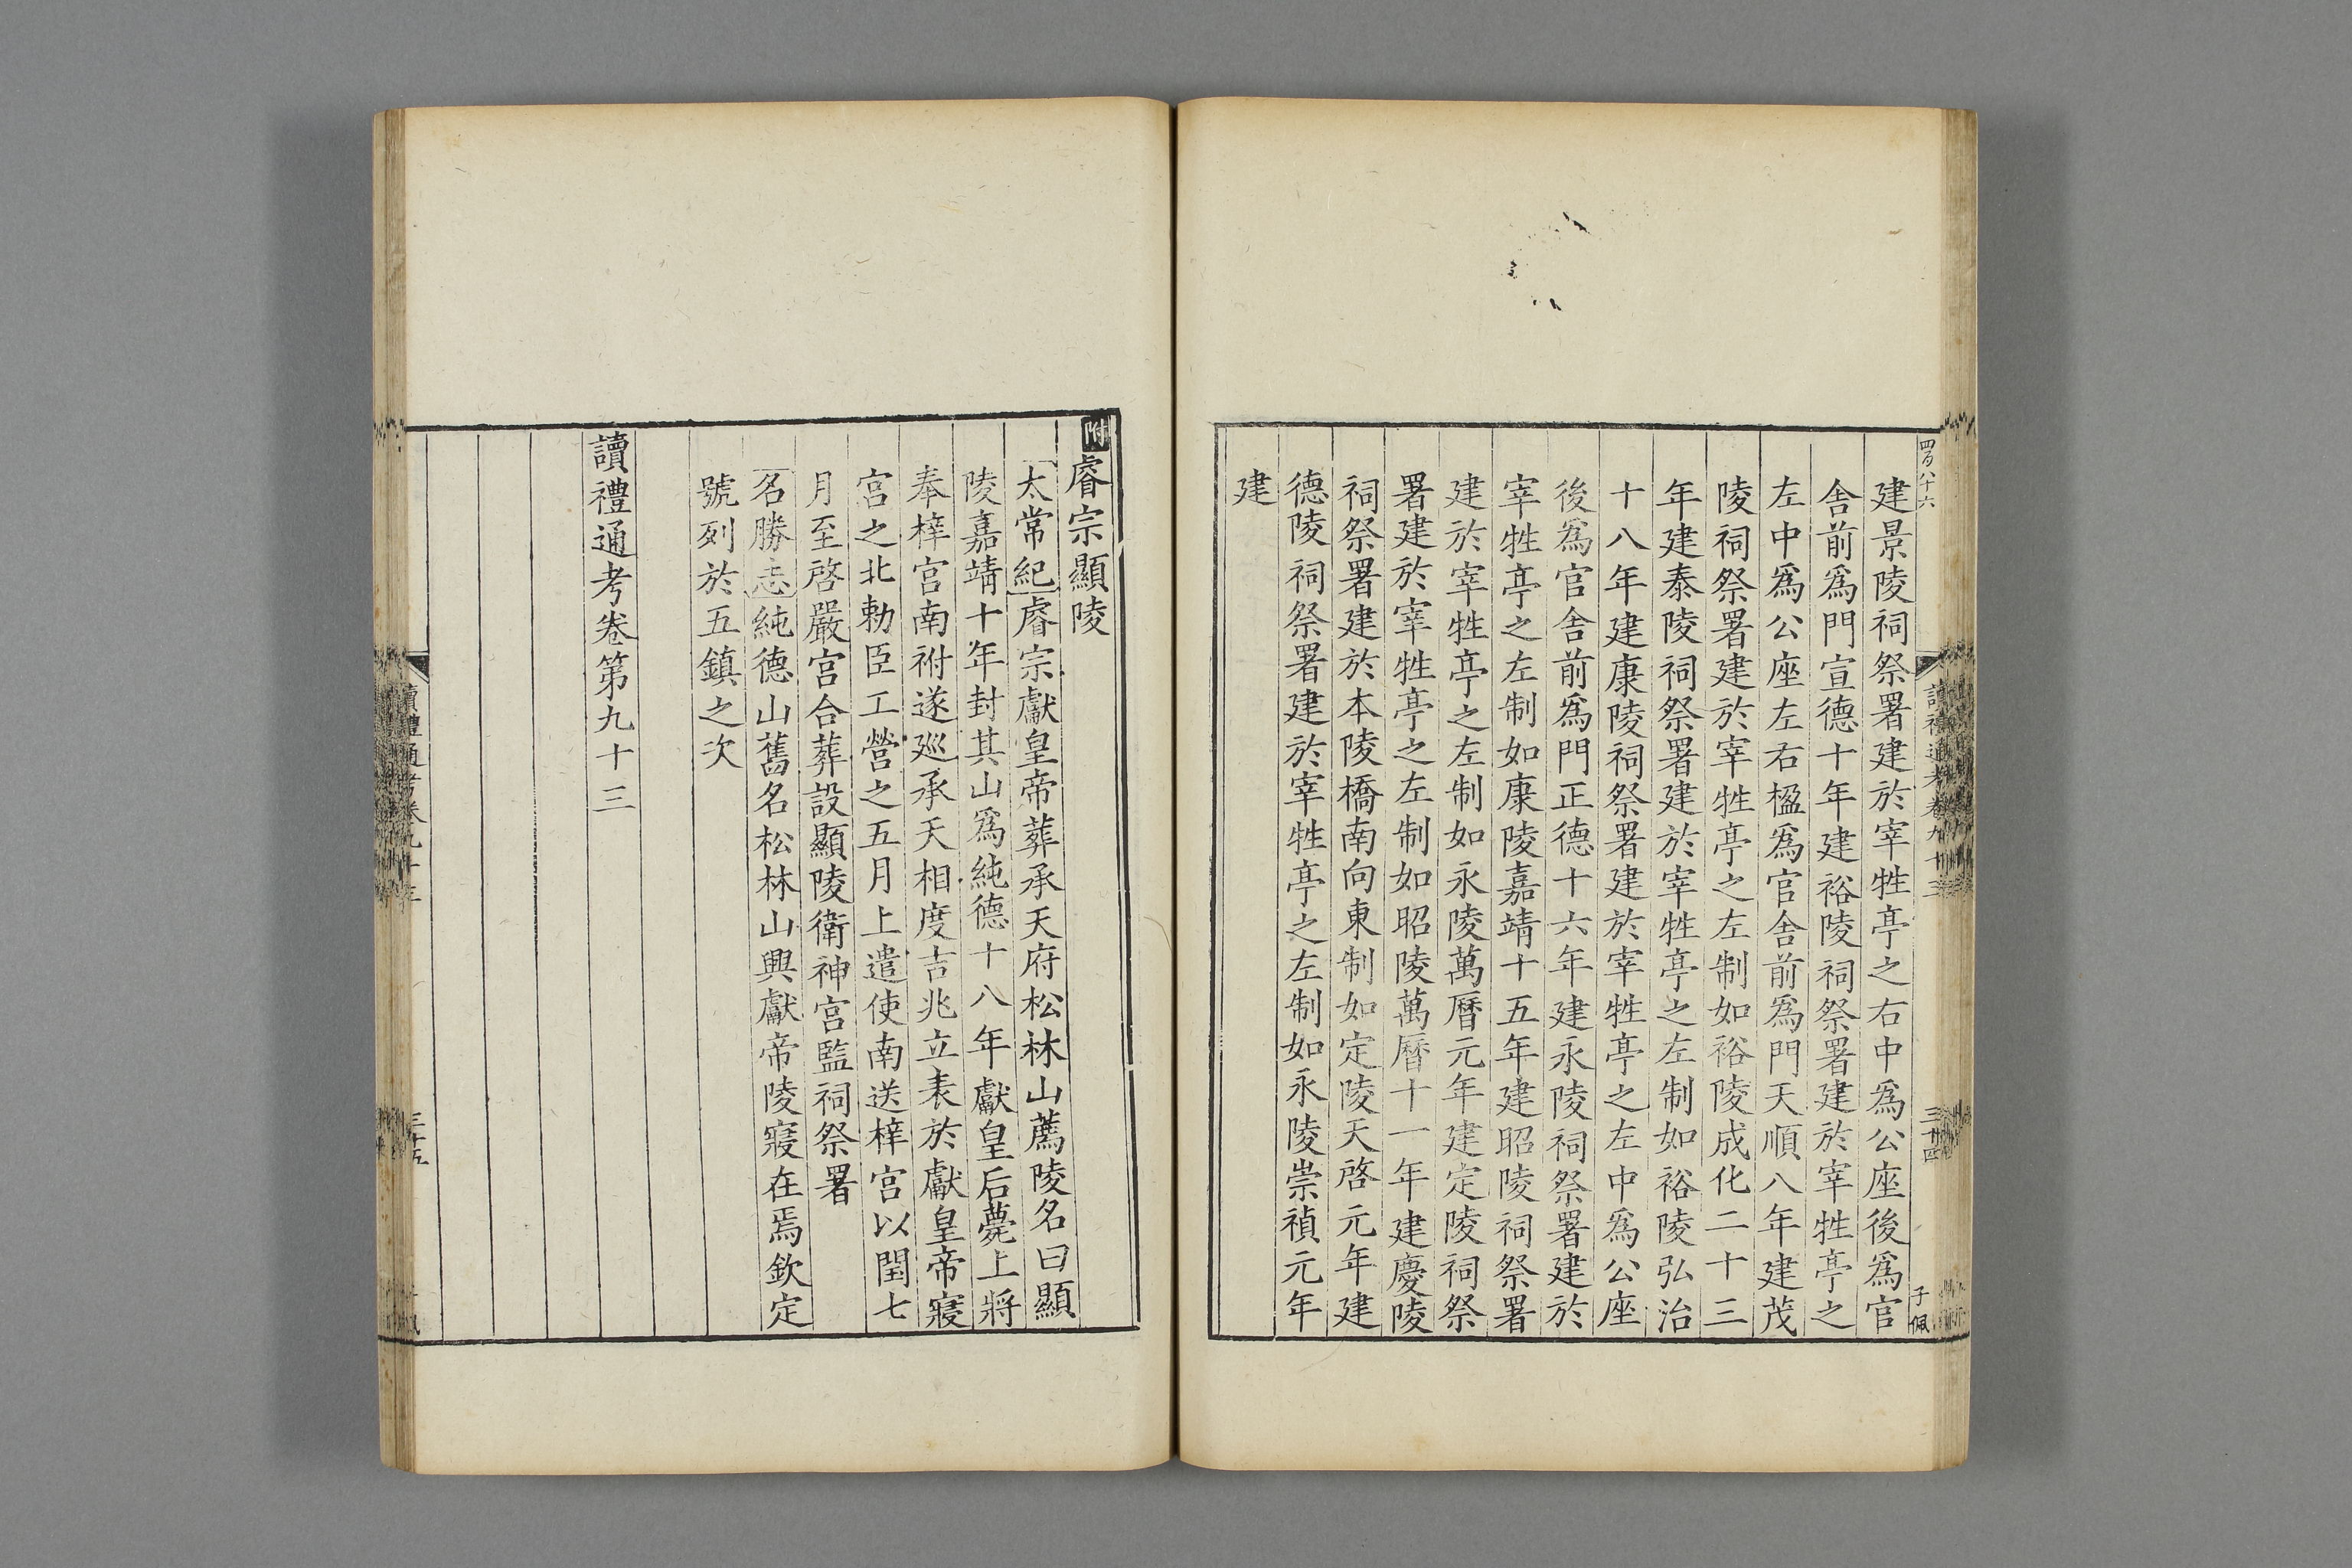 四百八十六
讀禮通考卷九十三
三十四
子佩
建景陵祠祭署建於宰牲亭之右中爲公座後爲官
舍前爲門宣德十年建裕陵祠祭署建於宰牲亭之
左中爲公座左右楹爲官舍前爲門天順八年建茂
陵祠祭署建於宰牲亭之左制如裕陵成化二十三
年建泰陵祠祭署建於宰牲亭之左制如裕陵弘治
十八年建康陵祠祭署建於宰牲亭之左中爲公座
後爲官舍前爲門正德十六年建永陵祠祭署建於
宰牲亭之左制如康陵嘉靖十五年建昭陵祠祭署
建於宰牲亭之左制如永陵萬曆元年建定陵祠祭
署建於宰牲亭之左制如昭陵萬曆十一年建慶陵
祠祭署建於本陵橋南向東制如定陵天啓元年建
德陵祠祭署建於宰牲亭之左制如永陵崇禎元年
建
附睿宗顯陵
太常紀睿宗獻皇帝葬承天府松林山薦陵名曰顯
陵嘉靖十年封其山爲純德十八年獻皇后薨上將
奉梓宮南祔遂廵承天相度吉兆立表於獻皇帝寢
宮之北勅臣工營之五月上遣使南送梓宮以閏七
月至啓嚴宮合葬設顯陵衛神宮監祠祭署
名勝志純德山舊名松林山興獻帝陵寢在焉欽定
號列於五鎮之次
讀禮通考卷第九十三
讀禮通考卷九十三
三十五